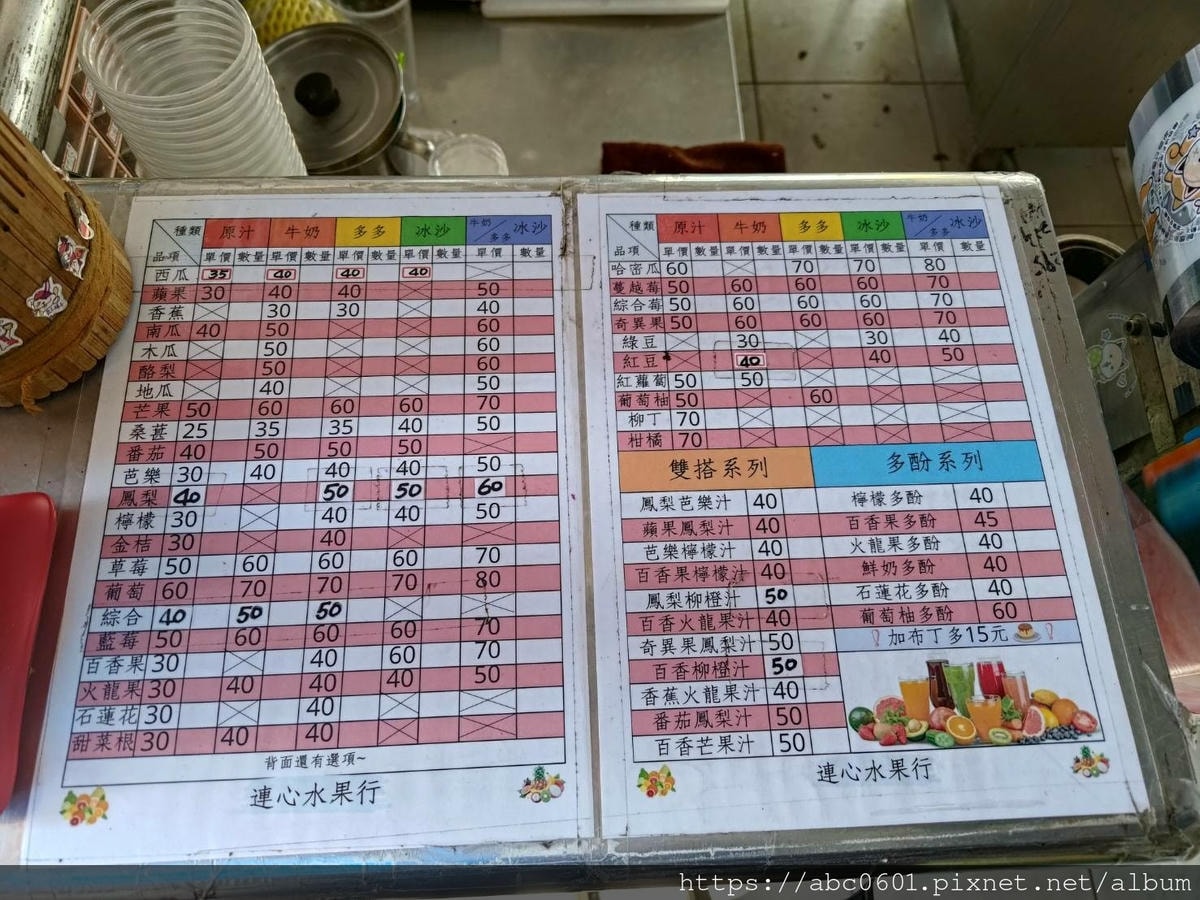 種類 原汁 牛奶 多多 冰沙 牛奶/多多 冰沙
品項 單價 數量 單價 數量 單價 數量 單價 數量 單價 數量
西瓜 35 40 40 40
蘋果 30 40 40 50
香蕉 30 30 40
南瓜 40 50 60
木瓜 50 60
酪梨 50 60
地瓜 40 50
芒果 50 60 60 60 70
桑葚 25 35 35 40 50
番茄 40 50 50 50
芭樂 30 40 40 40 50
鳳梨 40 50 50 60
檸檬 30 40 40 50
金桔 30 40
草莓 50 60 60 60 70
葡萄 60 70 70 70 80
綜合 40 50 50
藍莓 50 60 60 60 70
百香果 30 40 60 70
火龍果 30 40 40 40 50
石蓮花 30 40
甜菜根 30 40 40
背面還有選項~
連心水果行
種類 原汁 牛奶 多多 冰沙 牛奶/多多 冰沙
品項 單價 數量 單價 數量 單價 數量 單價 數量 單價 數量
哈密瓜 60 70 70 80
蔓越莓 50 60 60 60 70
綜合莓 50 60 60 60 70
奇異果 50 60 60 60 70
綠豆 30 30 40
紅豆 40 40 50
紅蘿蔔 50 50
葡萄柚 50 60
柳丁 70
柑橘 70
雙搭系列 多酚系列
鳳梨芭樂汁 40 檸檬多酚 40
蘋果鳳梨汁 40 百香果多酚 45
芭樂檸檬汁 40 火龍果多酚 40
百香果檸檬汁 40 鮮奶多酚 40
鳳梨柳橙汁 50 石蓮花多酚 40
百香火龍果汁 40 葡萄柚多酚 60
奇異果鳳梨汁 50 加布丁多15元
百香柳橙汁 50
香蕉火龍果汁 40
番茄鳳梨汁 50
百香芒果汁 50
連心水果行
https://abc0601.pixnet.net/album